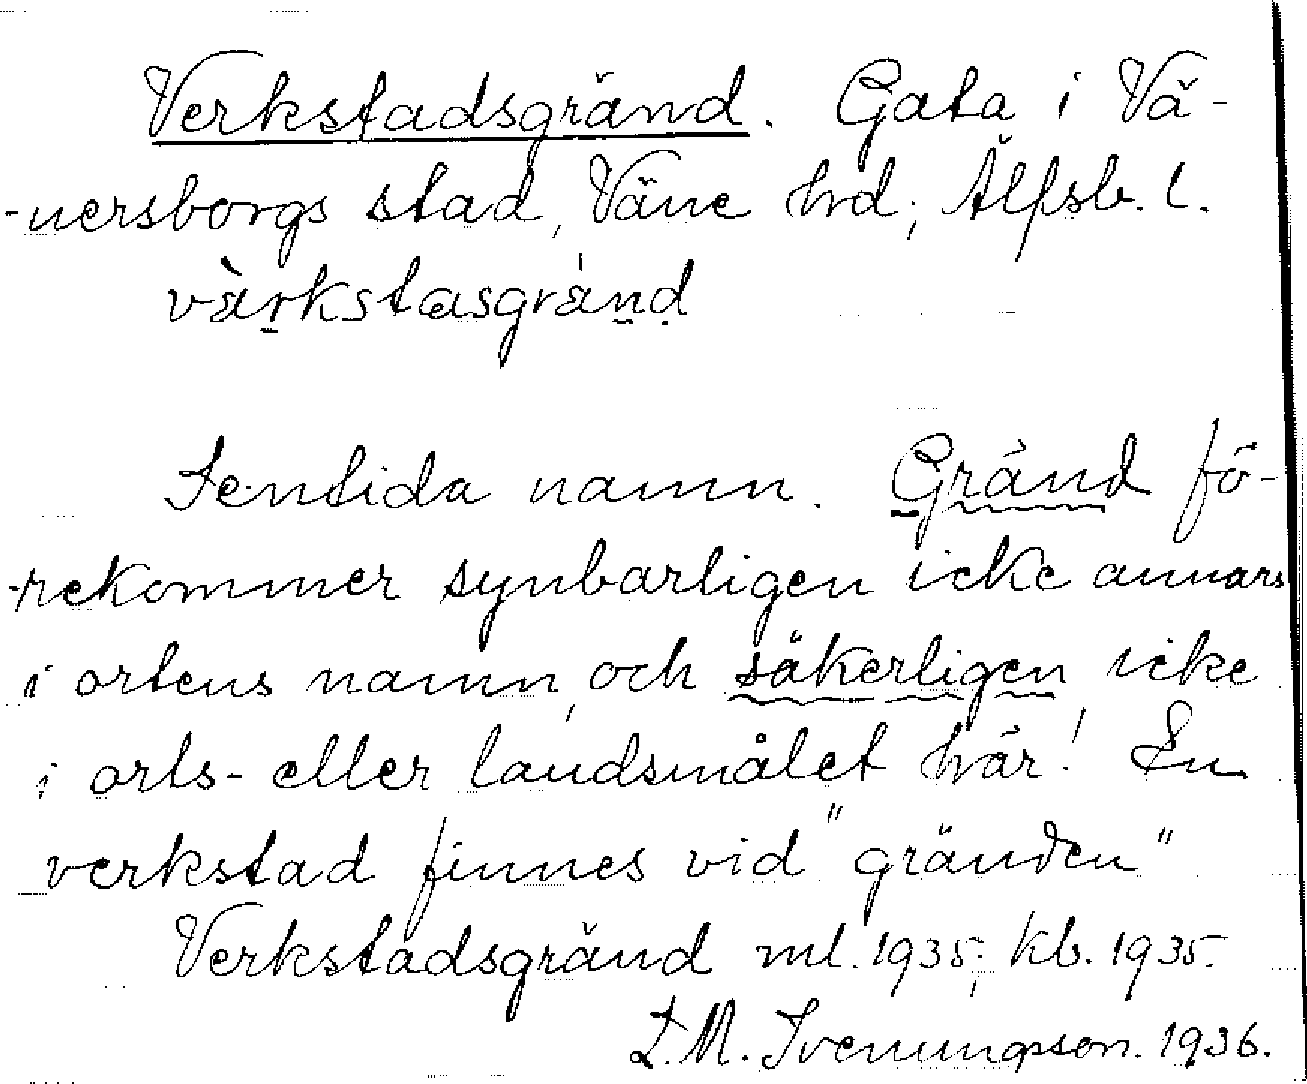 Verkstadsgränd. Gata i Vä-
-nersborgs stad, Väne hrd; Älfsb. l.
värkstasgränd
Sentida namn. Gränd fö-
-rekommer synbarligen icke annars
i ortens namn, och säkerligen icke
i orts- eller landsmålet här! En
verkstad finnes vid "gränden"
Verkstadsgränd ml. 1935; kb. 1935.
L. M. Svenungsson. 1936.